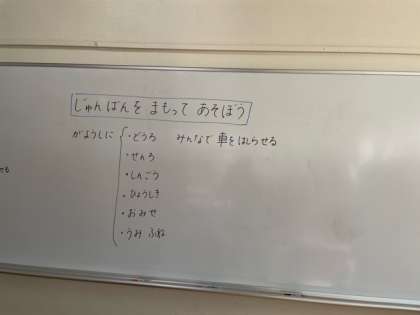 じゅんばんを まもって あそぼう
がようしに ・どうろ みんなで 車をはしらせる
・せんろ
・しんごう
・ひょうしき
・おみせ
・うみ ふね